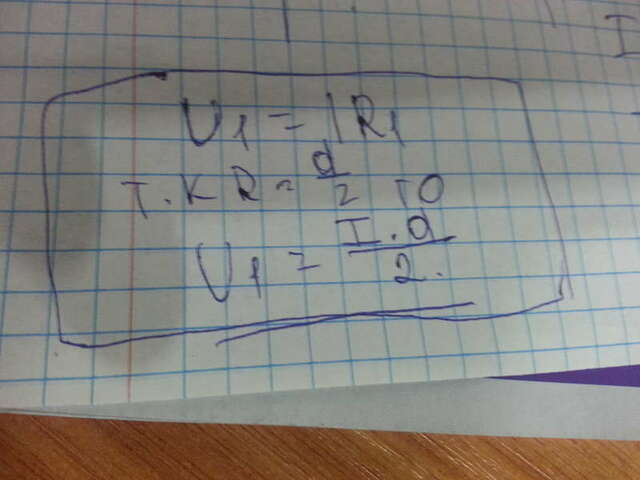 U1 = IR1
т.к R = d/2 то
U1 = I.d/2.